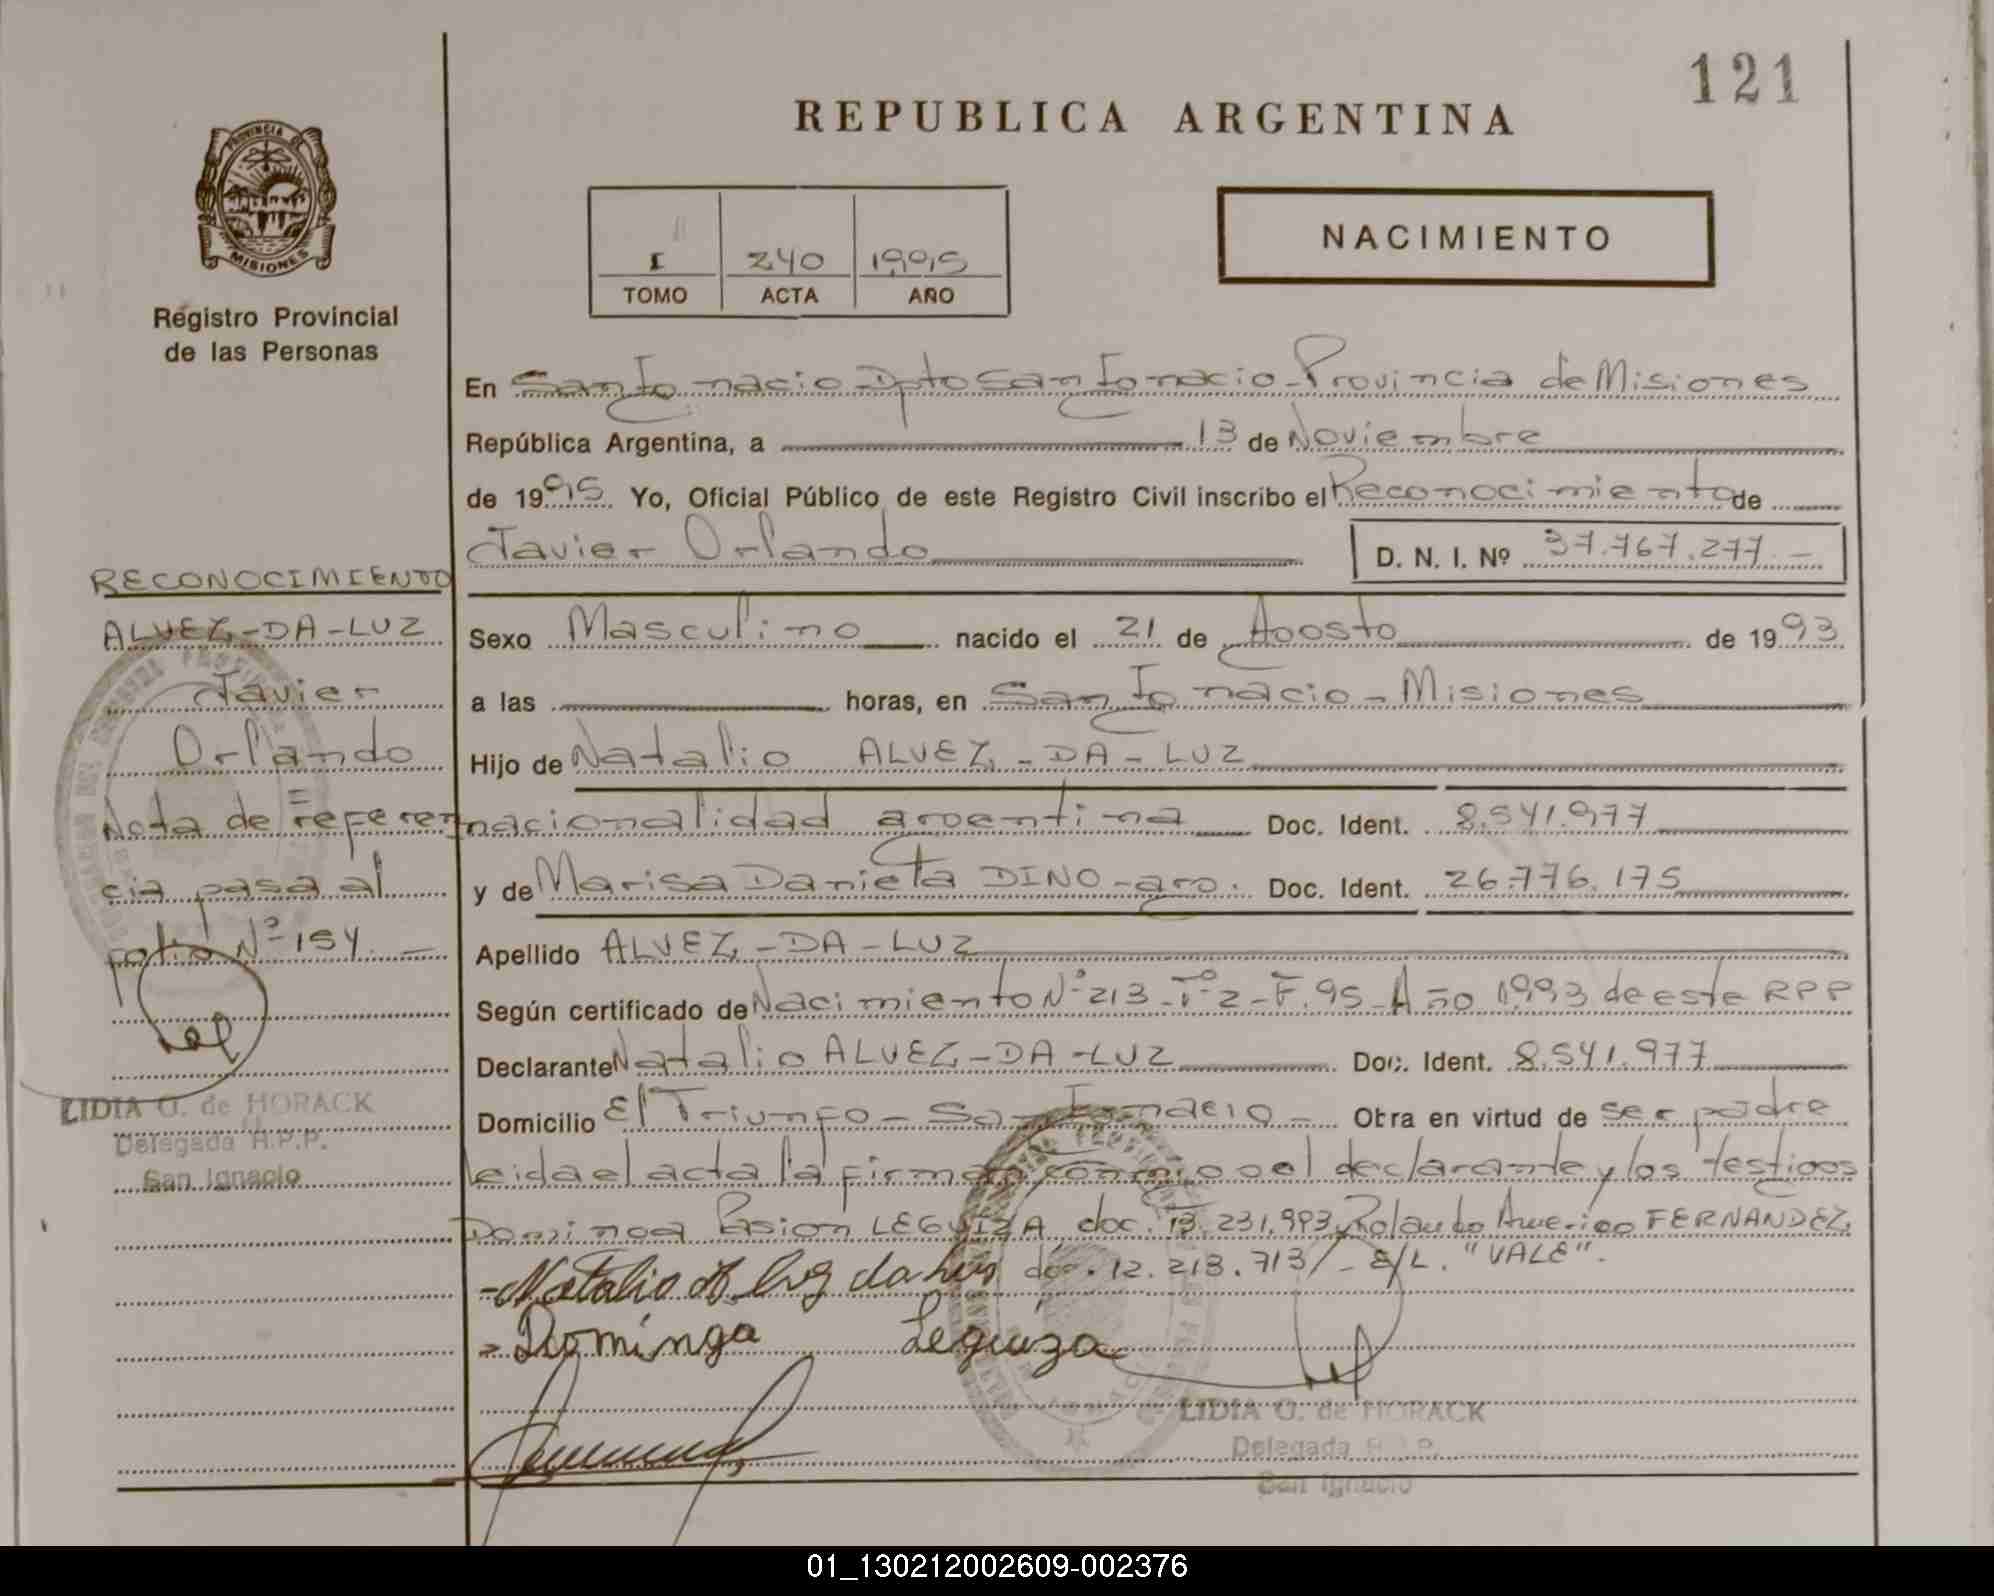 121
REPUBLICA ARGENTINA
PROVINCIA DE
MISIONES
Registro Provincial
de las Personas
I 240 1995
TOMO ACTA AÑO
NACIMIENTO
En San Ignacio Dpto San Ignacio - Provincia de Misiones
República Argentina, a 13 de Noviembre
de 1995. Yo, Oficial Público de este Registro Civil inscribo el Reconocimiento de
Javier Orlando D. N. I. Nº 37.767.277.-
Sexo Masculino nacido el 21 de Agosto de 1993
a las horas, en San Ignacio - Misiones
Hijo de Natalio ALVEZ-DA-LUZ
nacionalidad argentina Doc. Ident. 8.541.977
y de Marisa Daniela DINO - arg. Doc. Ident. 26.776.175
Apellido ALVEZ-DA-LUZ
Según certificado de Nacimiento Nº 213-Tº 2-F.95-Año 1993 de este RPP
Declarante Natalio ALVEZ-DA-LUZ Doc. Ident. 8.541.977
Domicilio El Triunfo - San Ignacio - Obra en virtud de ser padre
leida el acta la firman conmigo el declarante y los testigos
Dominga Pasion LEGUIZA doc. 13.231.993 y Rolando Americo FERNANDEZ
doc. 12.213.713/- E/L. "VALE".
- Natalio Alvez da Luz
- Dominga Leguiza
LIDIA O. de HORACK
Delegada R.P.P.
San Ignacio
RECONOCIMIENTO
ALVEZ-DA-LUZ
Javier
Orlando
Nota de referen
cia pasa al
folio Nº 154.-
LIDIA O. de HORACK
Delegada R.P.P.
San Ignacio
01_130212002609-002376